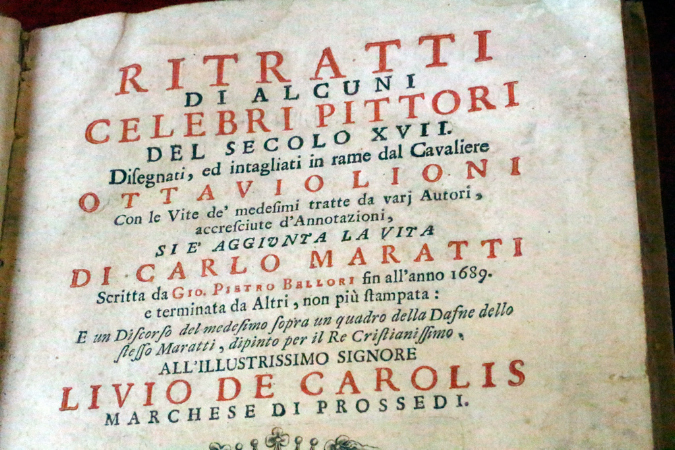 RITRATTI
DI ALCUNI
CELEBRI PITTORI
DEL SECOLO XVII.
Diſegnati, ed intagliati in rame dal Cavaliere
OTTAVIO LIONI
Con le Vite de' medeſimi tratte da varj Autori,
accreſciute d'Annotazioni,
SI E' AGGIUNTA LA VITA
DI CARLO MARATTI
Scritta da GIO. PIETRO BELLORI fin all'anno 1689.
e terminata da Altri, non più ſtampata:
E un Diſcorſo del medeſimo ſopra un quadro della Dafne dello
ſteſſo Maratti, dipinto per il Re Criſtianiſſimo,
ALL'ILLUSTRISSIMO SIGNORE
LIVIO DE CAROLIS
MARCHESE DI PROSSEDI.